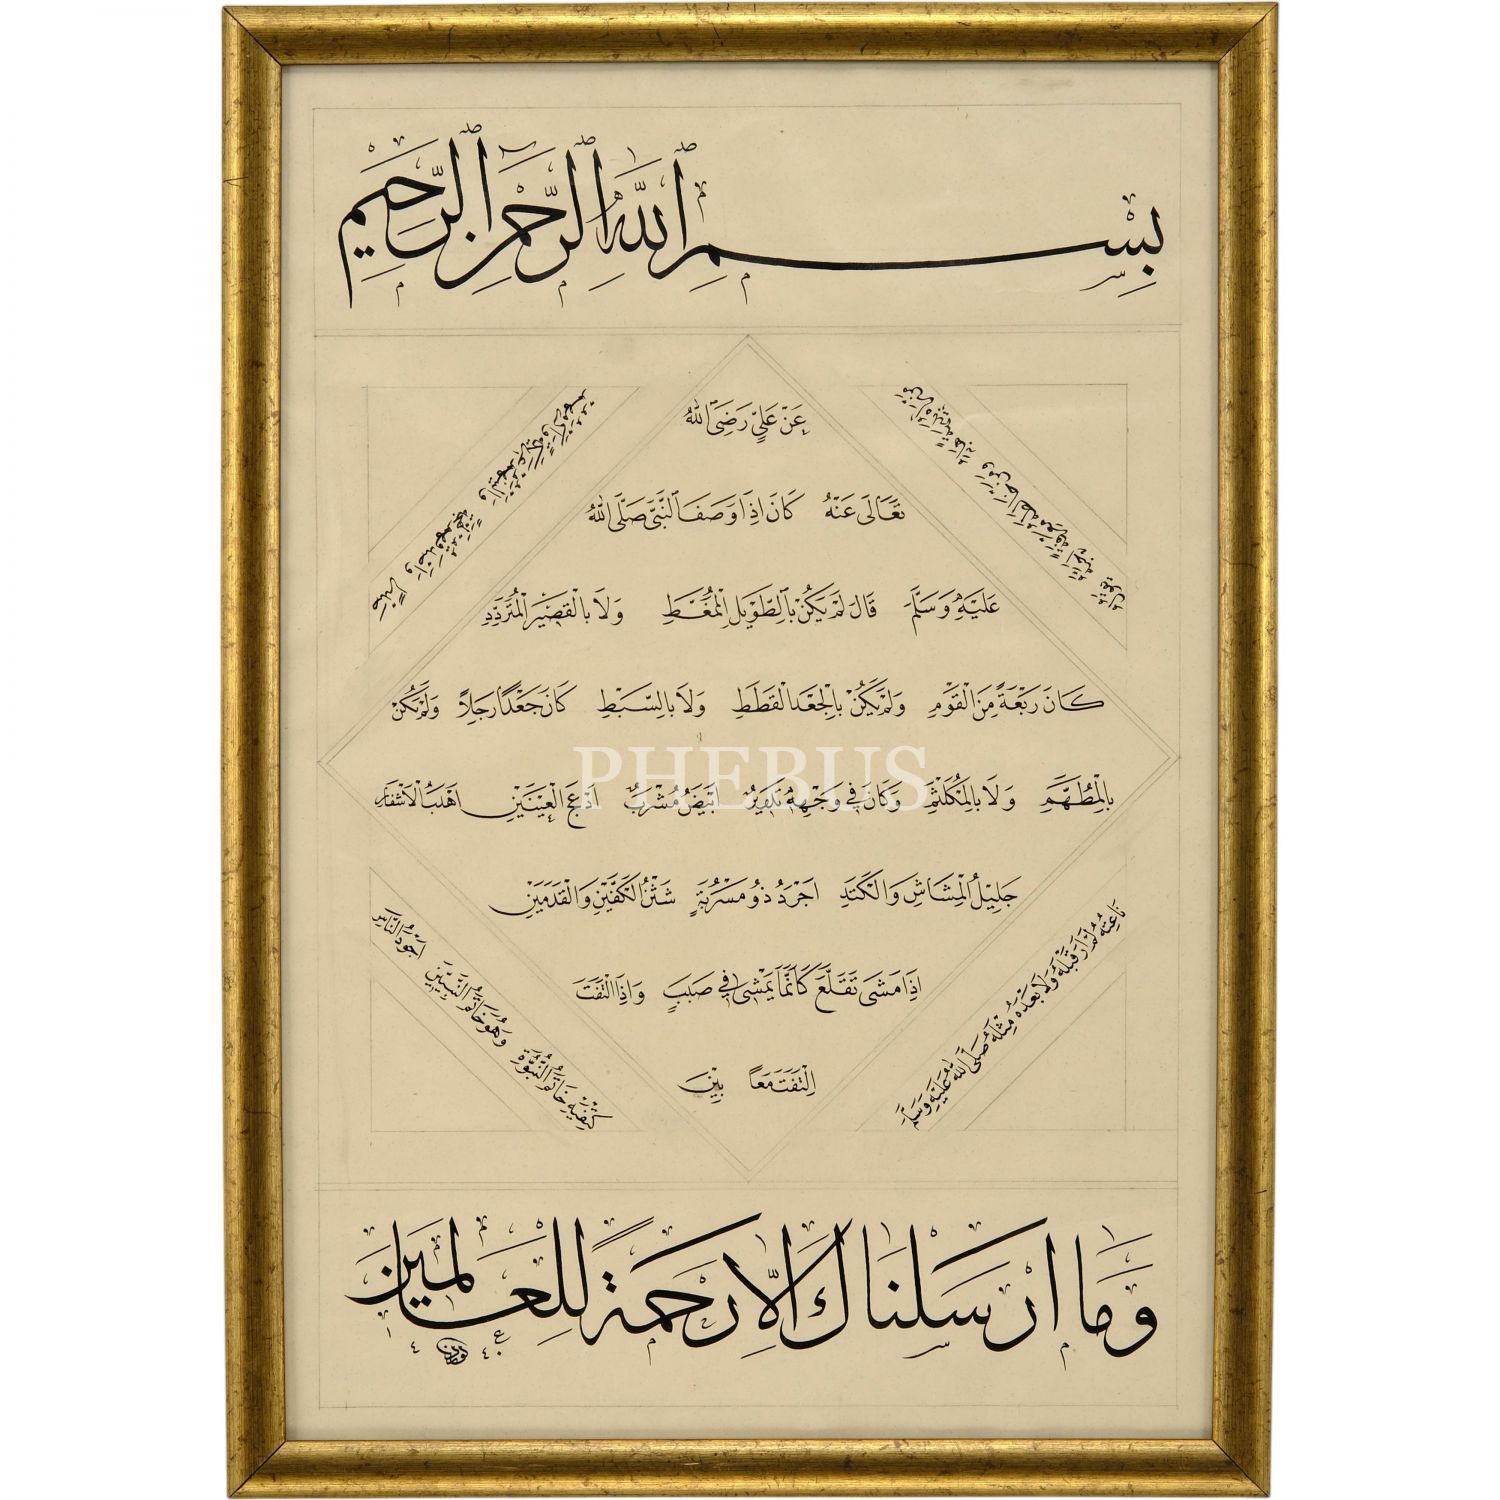 بِسْمِ ٱللَّهِ ٱلرَّحْمٰنِ ٱلرَّحِيمِ
عَنْ عَلِيٍّ رَضِيَ اللهُ
تَعَالَى عَنْهُ كَانَ اِذَا وَصَفَ النَّبِيَّ صَلَّى اللهُ
عَلَيْهِ وَسَلَّمَ قَالَ لَمْ يَكُنْ بِالطَّوِيلِ الْمُمَّغَطِ وَلَا بِالْقَصِيرِ الْمُتَرَدِّدِ
كَانَ رَبْعَةً مِنَ الْقَوْمِ وَلَمْ يَكُنْ بِالْجَعْدِ الْقَطَطِ وَلَا بِالسَّبْطِ كَانَ جَعْدًا رَجِلًا وَلَمْ يَكُنْ
PHEBUS
بِالْمُطَهَّمِ وَلَا بِالْمُكَلْثَمِ وَكَانَ فِي وَجْهِهِ تَدْوِيرٌ اَبْيَضُ مُشْرَبٌ اَدْعَجُ الْعَيْنَيْنِ اَهْدَبُ الْاَشْفَارِ
جَلِيلُ الْمُشَاشِ وَالْكَتَدِ اَجْرَدُ ذُو مَسْرُبَةٍ شَثْنُ الْكَفَّيْنِ وَالْقَدَمَيْنِ
اِذَا مَشَى تَقَلَّعَ كَاَنَّمَا يَمْشِي فِي صَبَبٍ وَاِذَا الْتَفَتَ
اِلْتَفَتَ مَعًا بَيْنَ
كَتِفَيْهِ خَاتَمُ النُّبُوَّةِ وَهُوَ خَاتَمُ النَّبِيِّينَ اَجْوَدُ النَّاسِ
نَاعِتُهُ لَمْ اَرَ قَبْلَهُ وَلَا بَعْدَهُ مِثْلَهُ صَلَّى اللهُ عَلَيْهِ وَسَلَّمَ
وَمَا اَرْسَلْنَاكَ اِلَّا رَحْمَةً لِلْعَالَمِينَ